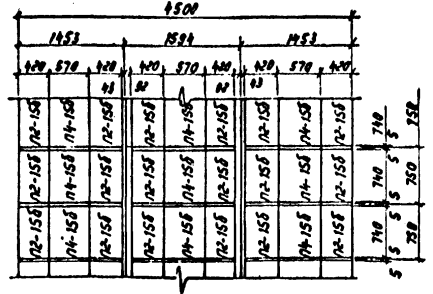 4500
1453 1594 1453
420 570 420 420 570 420 420 570 420
43 92 92 43
П2-15б П4-15б П2-15б П2-15б П4-15б П2-15б П2-15б П4-15б П2-15б 740 5 750
П2-15б П4-15б П2-15б П2-15б П4-15б П2-15б П2-15б П4-15б П2-15б 740 5 5 750
П2-15б П4-15б П2-15б П2-15б П4-15б П2-15б П2-15б П4-15б П2-15б 740 5 5 750
5